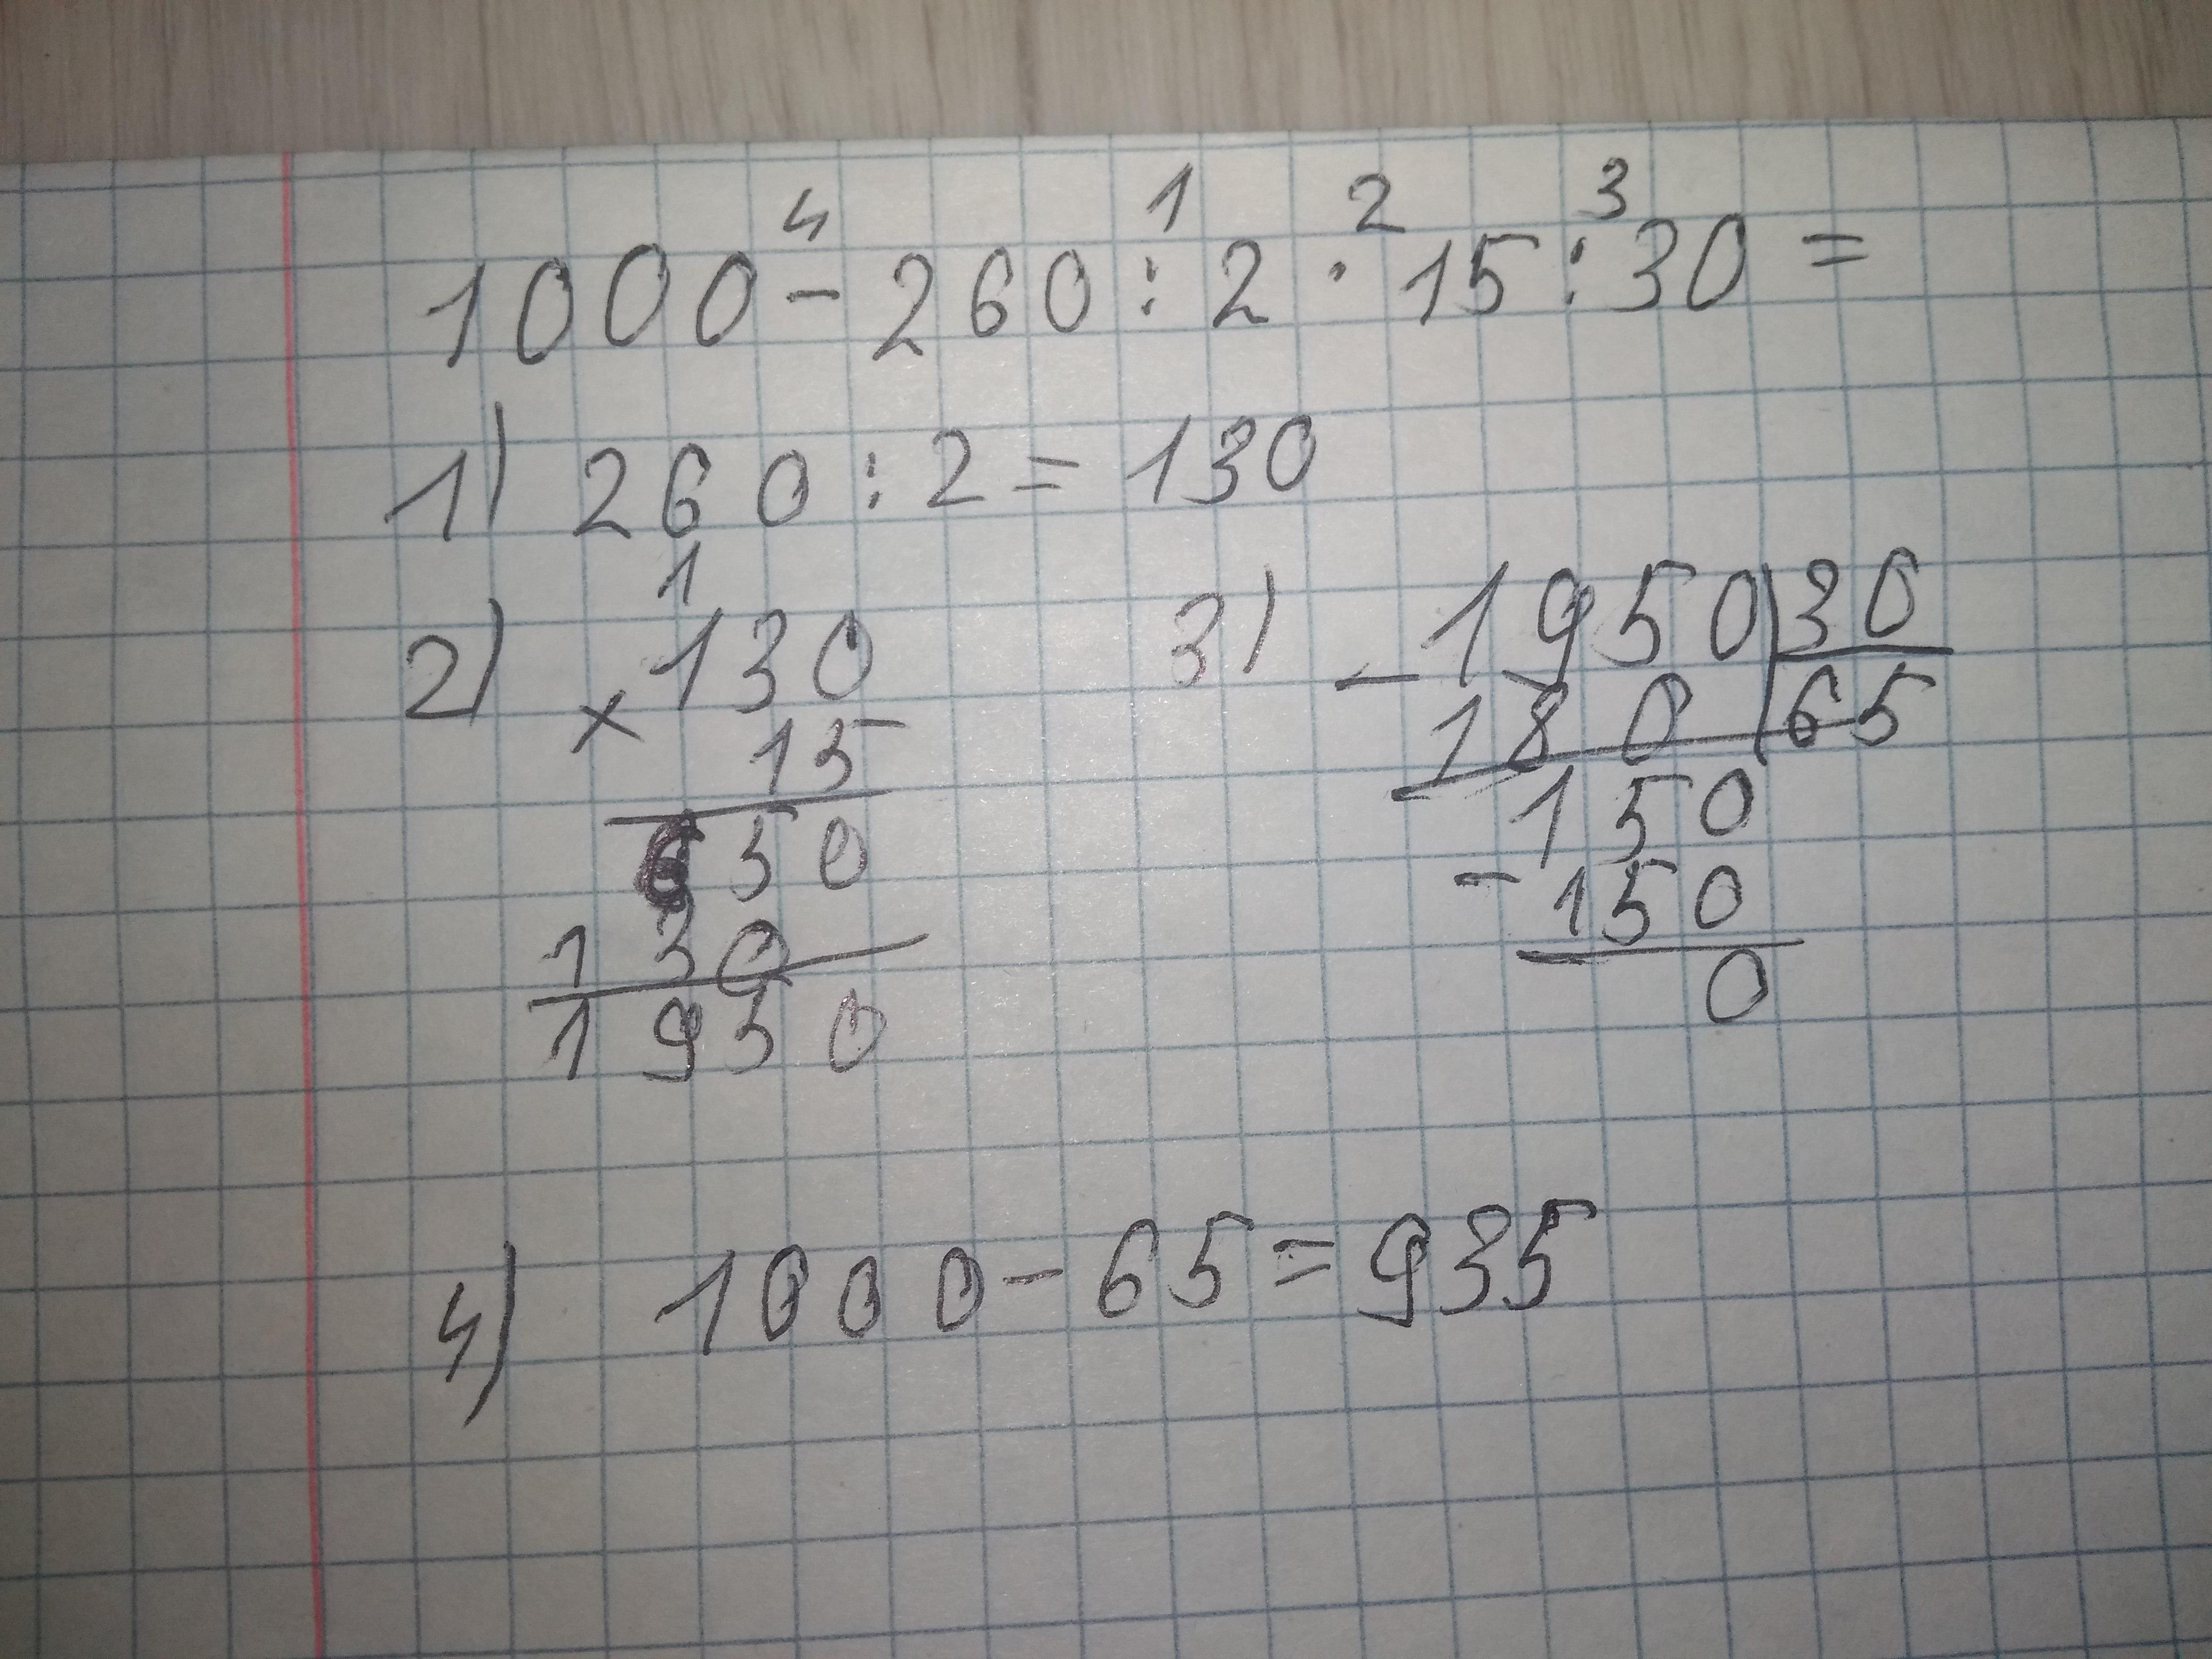 4 1 2 3
1000 - 260 : 2 · 15 : 30 =
1) 260 : 2 = 130
1
2) × 130
15
650
130
1950
3) - 1950 | 30
180 | 65
150
- 150
0
4) 1000 - 65 = 935